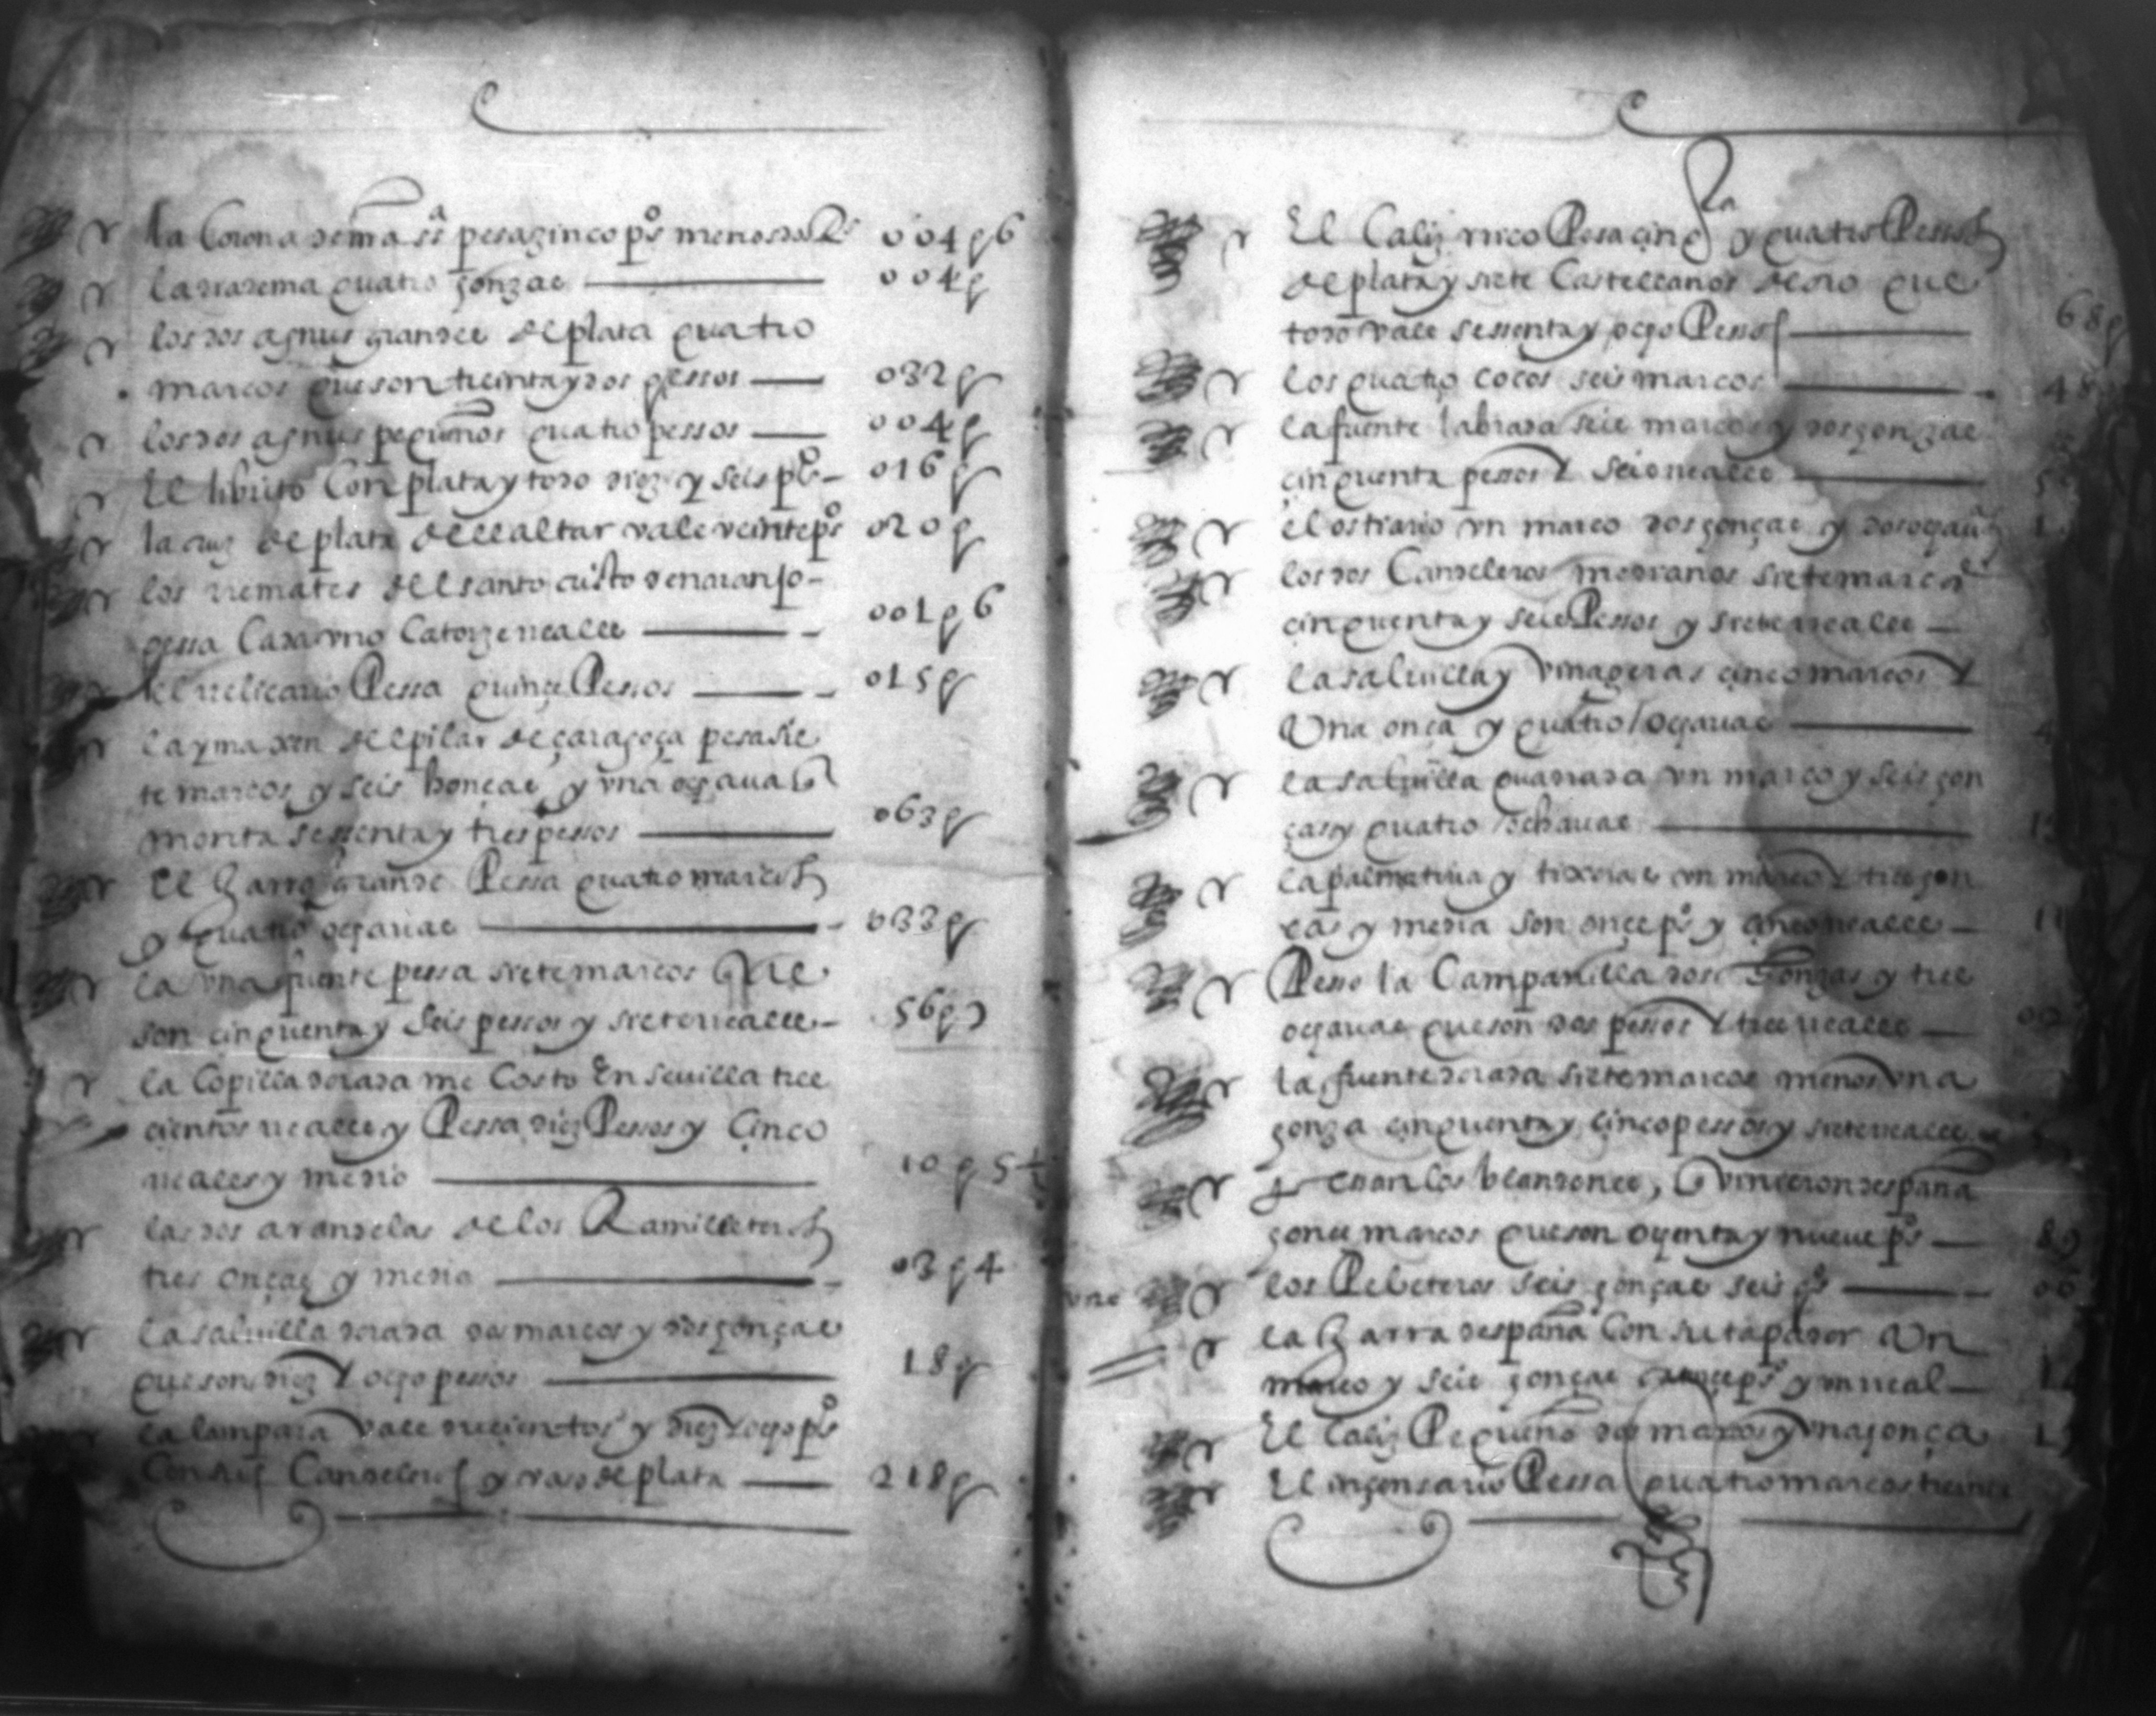 la Corona de ma sra pesa zinco ps menos dos Rs 004 ps 6
la diadema quatro honzas 004 ps
los dos agnus grandes de plata quatro
marcos que son treinta y dos pessos 032 ps
los dos agnus pequeños quatro pessos 004 ps
El librito Con plata y todo diez y seis ps 016 ps
la cruz de plata del altar vale veinte ps 020 ps
los remates del santo cristo de naranjo
pessa Cada vno Catorze reales 001 ps 6
el relicario Pessa quinçe Pessos 015 ps
la ymaxen del pilar de çaragoça pesa sie
te marcos y seis honças y vna ochaua
monta sessenta y tres pessos 063 ps
El Jarro grande Pessa quatro marcos
y quatro ochauas 033 ps
la vna fuente pessa siete marcos que
son çinquenta y seis pessos y siete reales 56 ps 7
la Copilla dorada me Costo En seuilla tres
cientos reales y Pessa diez Pessos y Çinco
reales y medio 10 ps 5 ½
las dos arandelas de los Ramilletes
tres onças y media 03 ps 4
la saluilla dorada dos marcos y dos honças
que son diez y ocho pessos 18 ps
la lampara vale ducientos y diez y ocho ps
Con sus Candeleros y vaso de plata 218 ps
El Caliz rico Pesa çinqta y quatro Pessos
de plata y siete Castellanos de oro que
todo vale sessenta y ocho Pessos 68 ps
los quatro cocos seis marcos 48
la fuente labrada seis marcos y dos honzas
çinquenta pessos y seis reales
el ostiario vn marco dos honças y dos ochauas
los dos Candeleros medianos siete marcos
çinquenta y seis Pessos y siete reales
la saluilla y vinageras çinco marcos y
Una onça y quatro ochauas
la saluilla quadrada vn marco y seis hon
ças y quatro ochauas
la palmatoria y tixeras vn marco y tres hon
cas y media son onçe ps y çinco reales 11
Pesso la Campanilla dos honzas y tres
ochauas que son dos pessos y tres reales
la fuente dorada siete marcos menos vna
honza çinquenta y çinco pessos y siete reales
los blandones, que vinieron despaña
honce marcos que son ochenta y nueue ps 89
los Pebeteros seis honças seis ps 06
la Jarra despaña Con su tapador Un
marco y seis honças catorçe ps y vn real
El Caliz Pequeño dos marcos y vna honça
El inçensario Pessa quatro marcos treinta